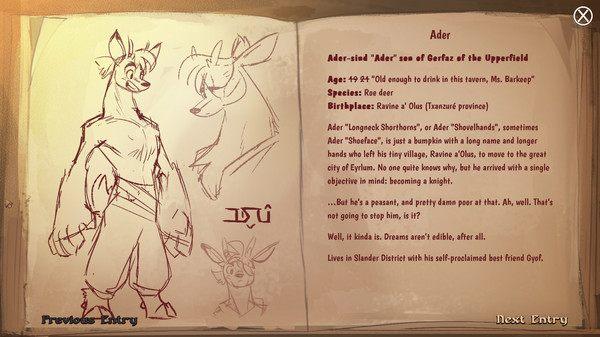 Ader
Ader-sind "Ader" son of Gerfaz of the Upperfield
Age: 19 21 "Old enough to drink in this tavern, Ms. Barkeep"
Species: Roe deer
Birthplace: Ravine a' Olus (Txanzuré province)
Ader "Longneck Shorthorns", or Ader "Shovelhands", sometimes
Ader "Shoeface", is just a bumpkin with a long name and longer
hands who left his tiny village, Ravine a'Olus, to move to the great
city of Eyrlum. No one quite knows why, but he arrived with a single
objective in mind: becoming a knight.
...But he's a peasant, and pretty damn poor at that. Ah, well. That's
not going to stop him, is it?
Well, it kinda is. Dreams aren't edible, after all.
Lives in Slander District with his self-proclaimed best friend Gyof.
Previous Entry
Next Entry